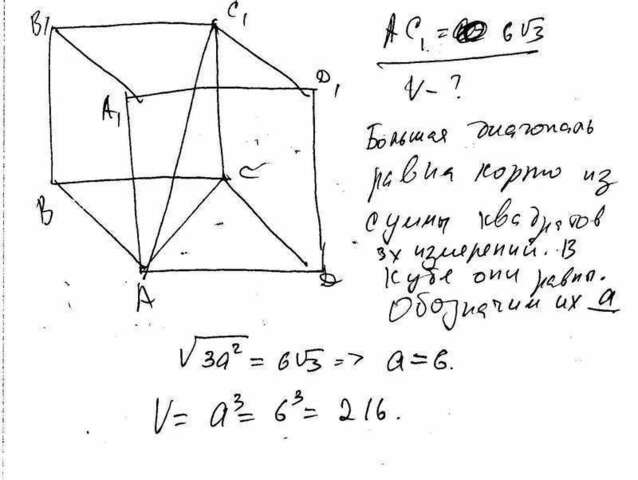 B₁
C₁
A₁
D₁
B
C
A
D
AC₁ = 6√3
V - ?
Большая диагональ
равна корню из
суммы квадратов
3х измерений. В
кубе они равны.
Обозначим их a
√3a² = 6√3 => a = 6.
V = a³ = 6³ = 216.